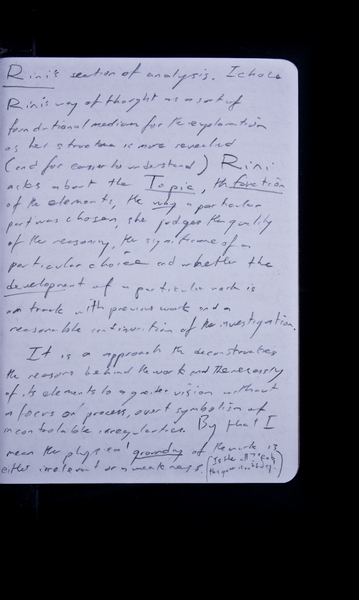 Rini's section of analysis. I chose
Rini's way of thought as a sort of
foundational medium for the explanation
as her structure is more revealed
(and for easier to understand) Rini
asks about the Topic, the function
of the elements, the why a particular
part was chosen, she judges the quality
of the reasoning, the significance of a
particular choice and whether the
development of a particular work is
on track with previous work and a
reasonable continuation of the investigation.
It is a approach the deconstructs
the reasons behind the work and the necessity
of its elements to a greater vision without
a focus on process, overt symbolism of
incontrolable irregularities. By that I
mean the physical grounding of the work is
either irrelevant or a weakness.